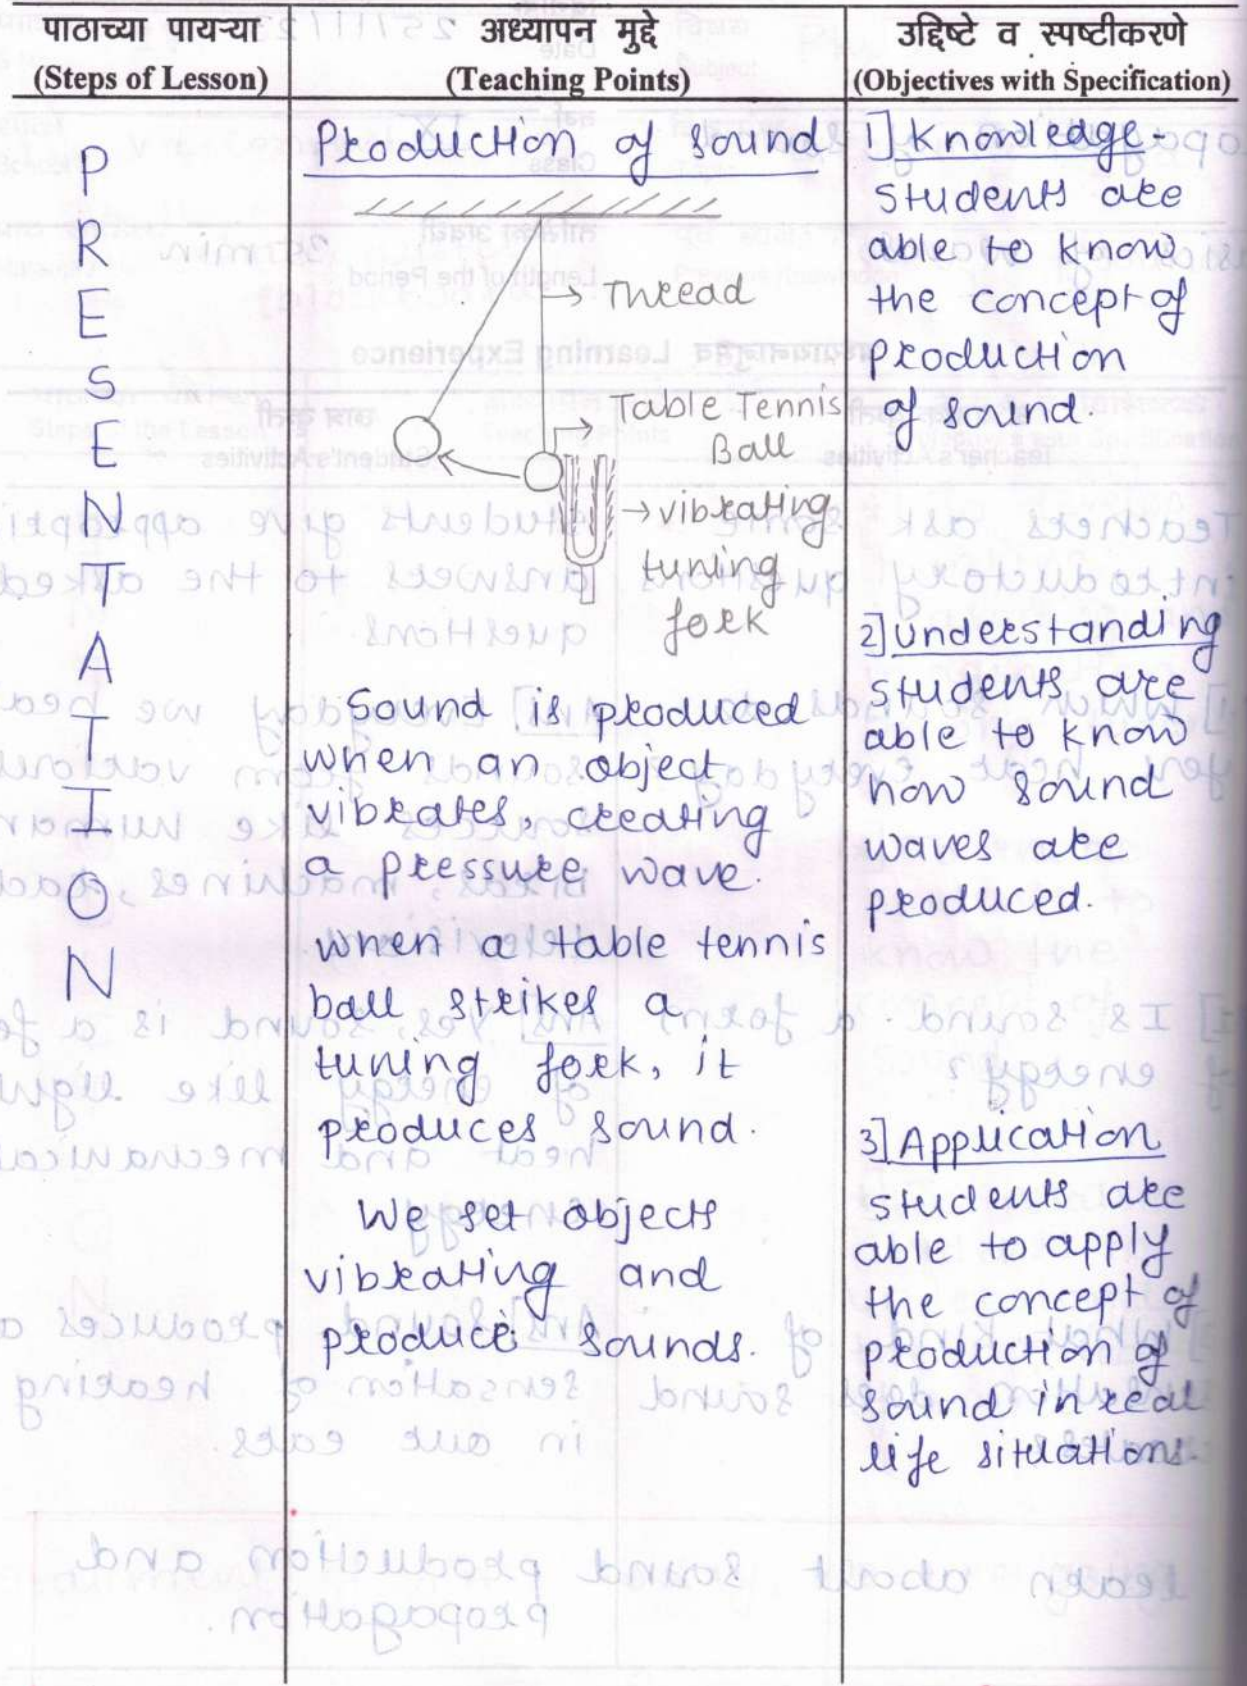 पाठाच्या पायऱ्या
(Steps of Lesson)
अध्यापन मुद्दे
(Teaching Points)
उद्दिष्टे व स्पष्टीकरणे
(Objectives with Specification)
P
R
E
S
E
N
T
A
T
I
O
N
Production of sound
→ Thread
Table Tennis
Ball
→ vibrating
tuning
fork
Sound is produced
when an object
vibrates, creating
a pressure wave.
when a table tennis
ball strikes a
tuning fork, it
produces sound.
We set objects
vibrating and
produce sounds.
1] Knowledge-
students are
able to know
the concept of
production
of sound.
2] Understanding
students are
able to know
how sound
waves are
produced.
3] Application
students are
able to apply
the concept of
production of
sound in real
life situations.